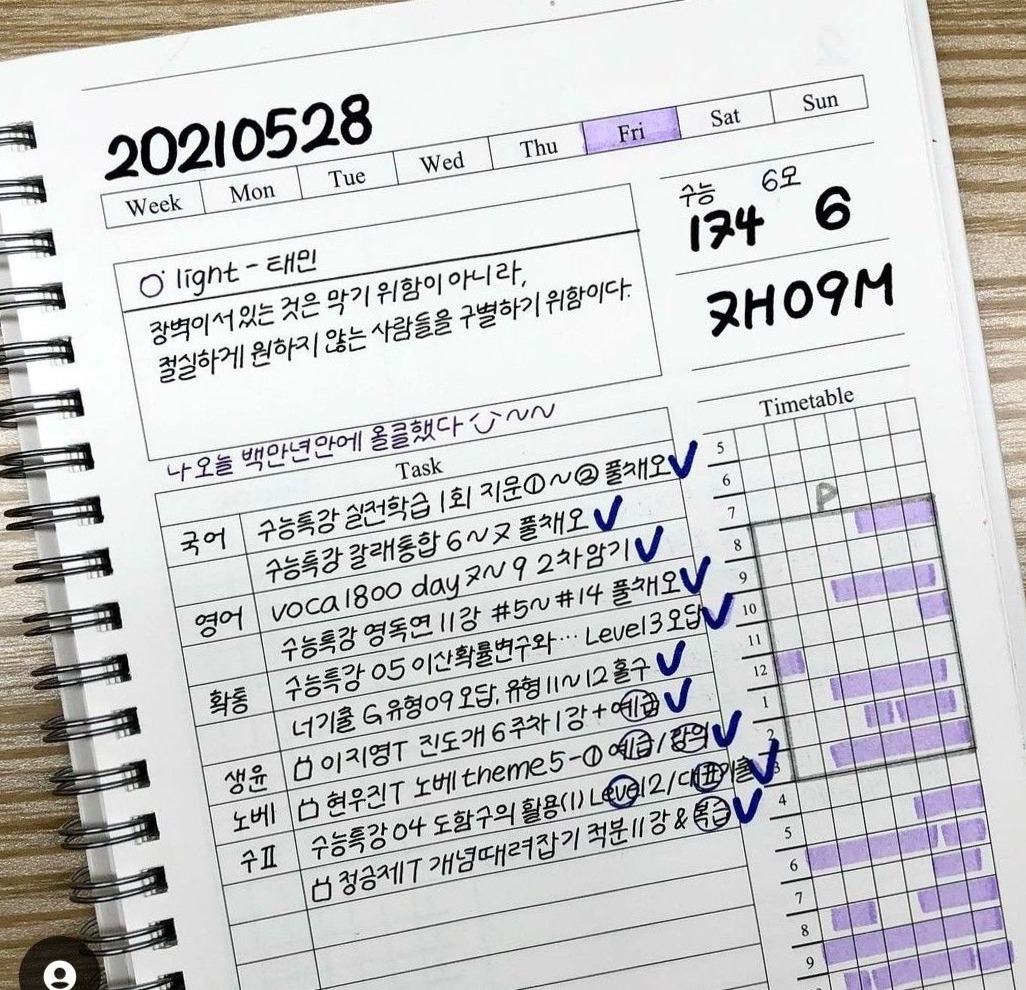 20210528
Week Mon Tue Wed Thu Fri Sat Sun
수능 6모
174 6
7H09M
light - 태민
장벽이 서 있는 것은 막기 위함이 아니라,
절실하게 원하지 않는 사람들을 구별하기 위함이다.
나 오늘 백만년만에 올클했다
Task
국어 수능특강 실전학습 1회 지문①~② 풀채오
수능특강 갈래통합 6~7 풀채오
영어 voca 1800 day 7~9 2차암기
수능특강 영독연 11강 #5~#14 풀채오
확통 수능특강 05 이산확률변수와… Level3 오답
너기출 G 유형09 오답, 유형11~12 홀수
생윤 이지영T 진도개 6주차 1강 + 예습
노베 현우진T 노베 theme5-① 예습/강의
수Ⅱ 수능특강 04 도함수의 활용(1) Level2/대표기출
정승제T 개념때려잡기 적분 11강 & 복습
Timetable
5
6
P
7
8
9
10
11
12
1
2
3
4
5
6
7
8
9